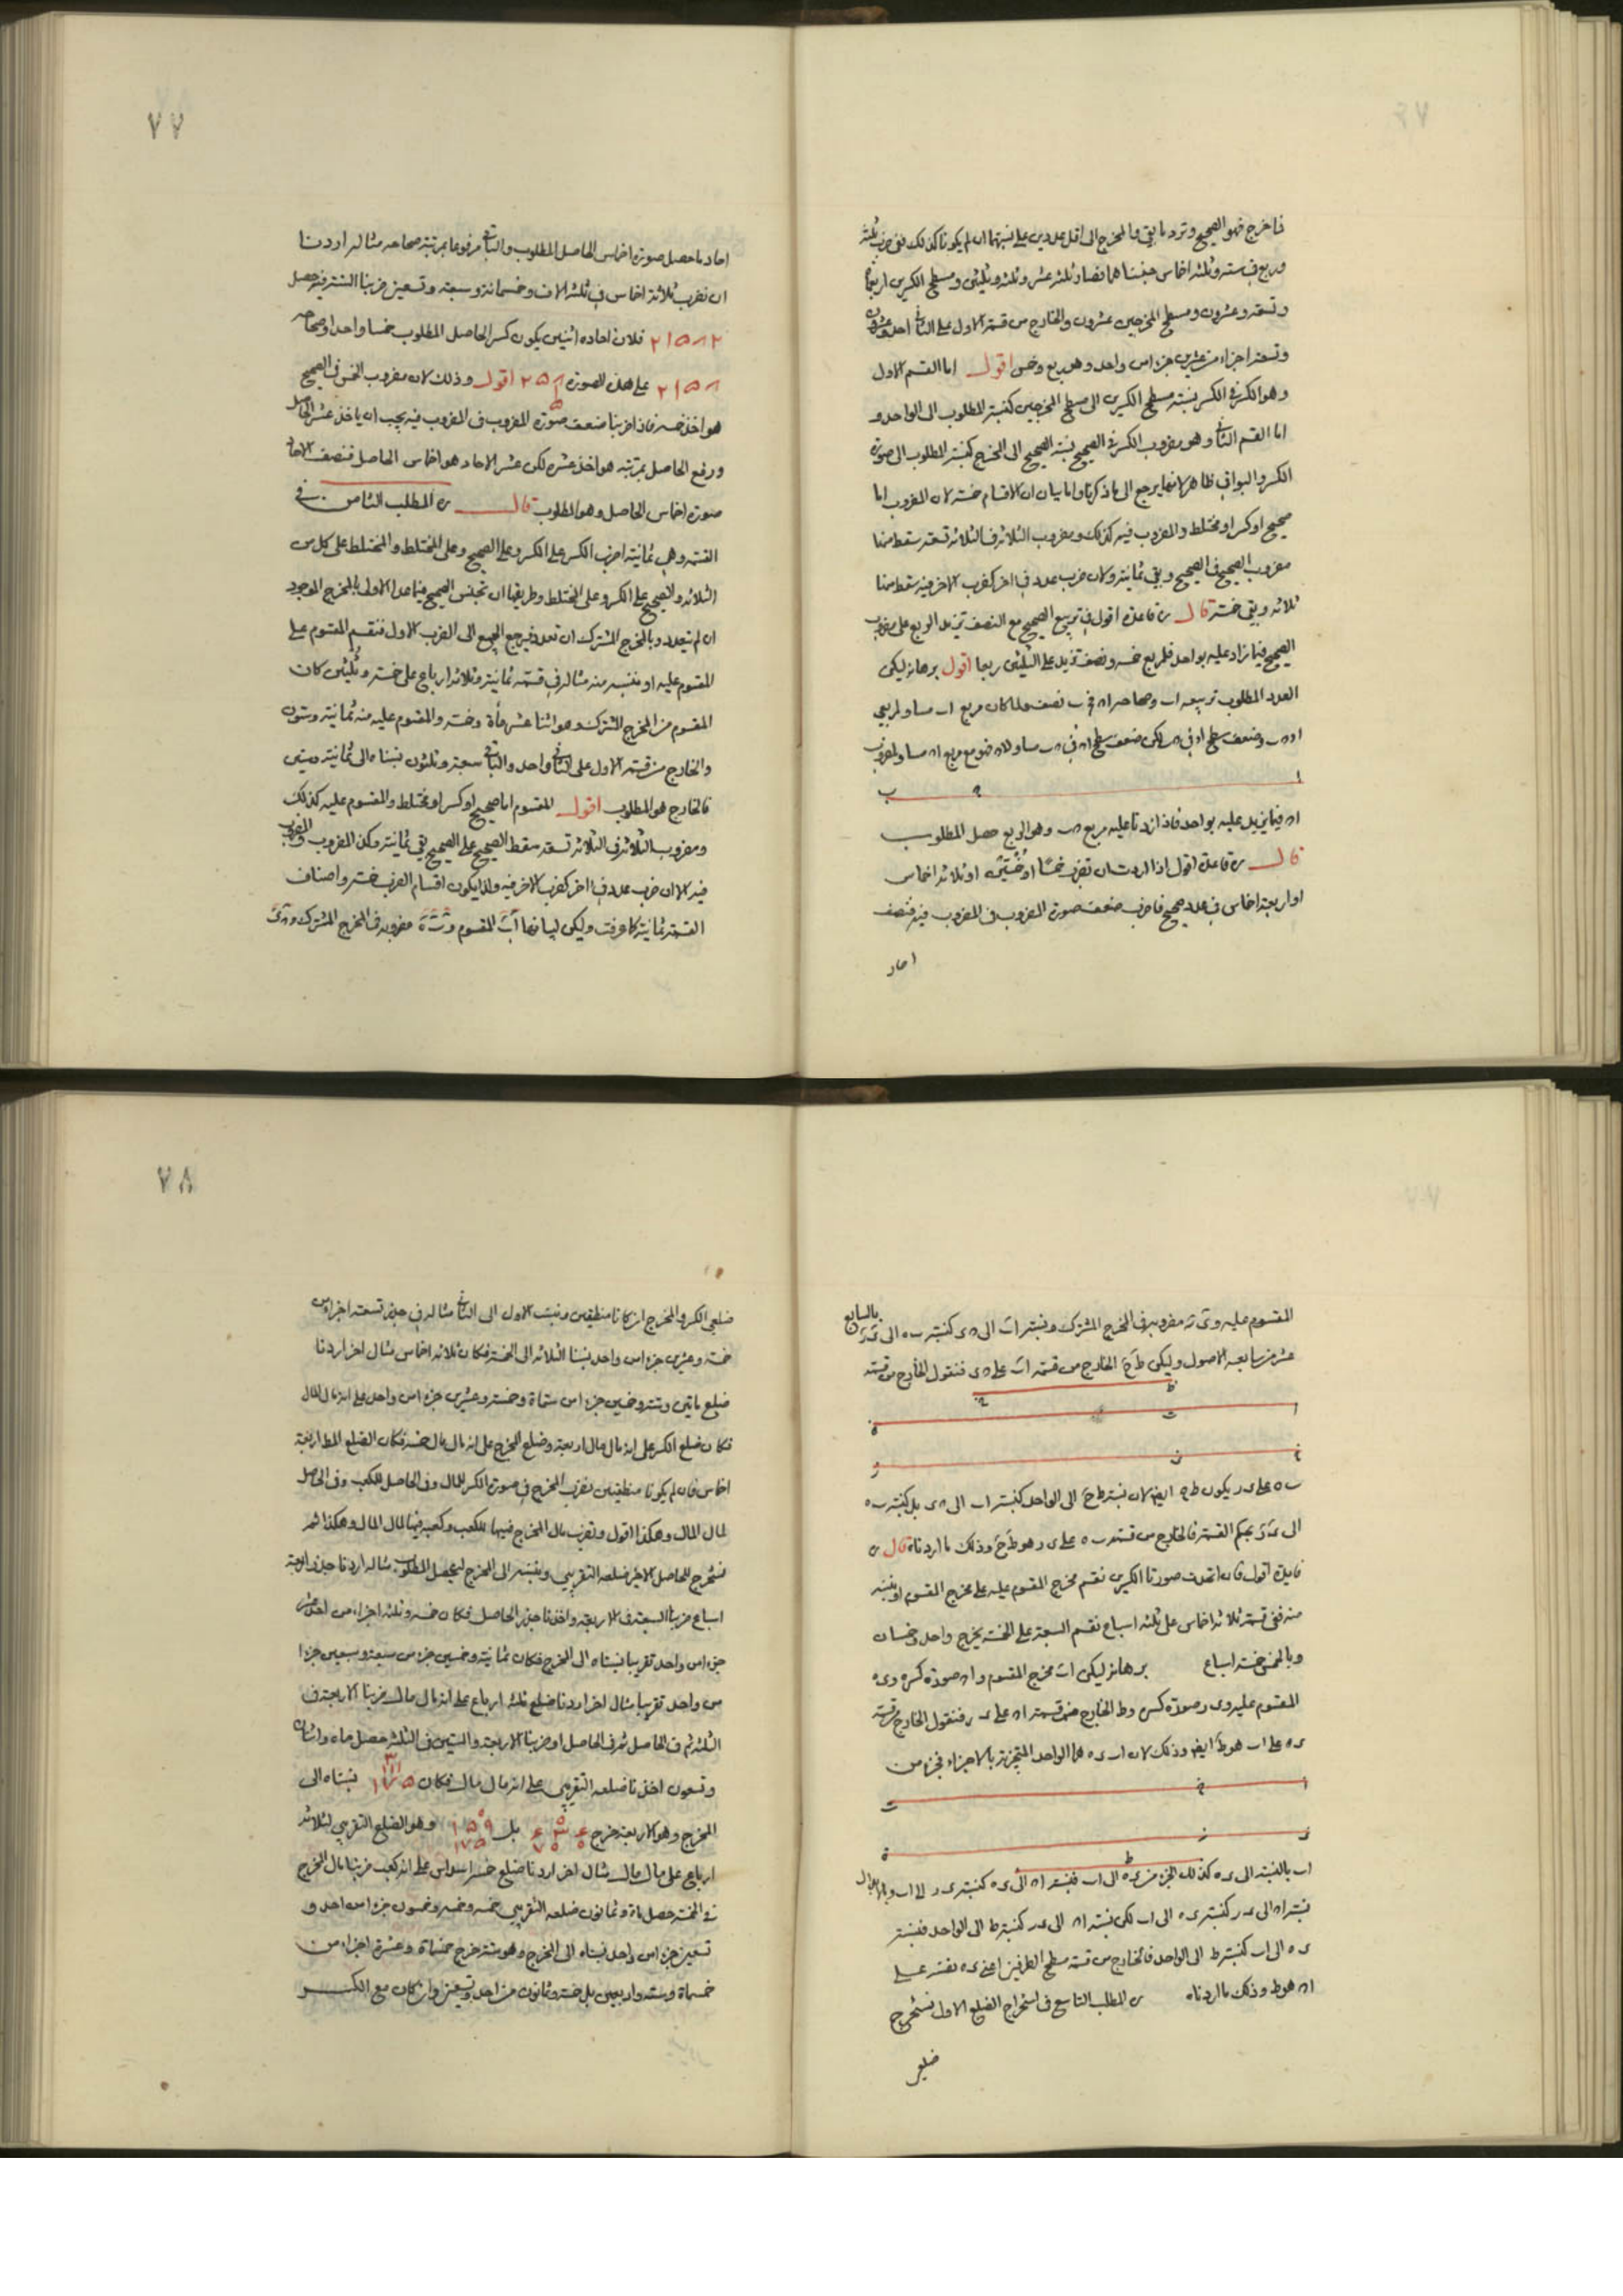 فما خرج فهو الصحيح وترد ما بقي والمخرج الى اقل عددين على نسبتهما ان لم يكونا كذلك ففي ضرب ثلثة
وربع في ستة وثلثة اخماس جنسناهما فصارا ثلثة عشر وثلثة وثلثين ومسطح الكسرين اربعمائة
وتسعة وعشرون ومسطح المخرجين عشرون والخارج من قسمة الاول على الثاني احد وعشرون
وتسعة اجزاء من عشرين جزءا من واحد وهو ربع وخمس اقول اما القسم الاول
وهو الكسر في الكسر نسبة مسطح الكسرين الى مسطح المخرجين كنسبة المطلوب الى الواحد و
اما القسم الثاني وهو مضروب الكسر في الصحيح نسبة الصحيح الى المخرج كنسبة المطلوب الى صورة
الكسر والبواقي ظاهر لانها يرجع الى ما ذكرنا واما بيان ان الاقسام خمسة لان المضروب اما
صحيح او كسر او مختلط والمضروب فيه كذلك ومضروب الثلاثة في الثلاثة تسعة سقط منها
مضروب الصحيح في الصحيح وبقي ثمانية ولان ضرب عدد في اخر كضرب الاخر فيه سقط منها
ثلاثة وبقي خمسة قال ره قاعدة اقول في تربيع الصحيح مع النصف تزيد الربع على مضروب
الصحيح فيما زاد عليه بواحد فلمربع خمسة ونصف تزيد على الثلثين ربعا اقول برهانه ليكن
العدد المطلوب تربيعه اب وصحاحه اح في ب نصف ولما كان مربع اب مساو لمربعي
اح حب وضعف سطح اح في حب لكن ضعف سطح اح في حب مساو لاح فهو مع مربع اح مساو لمضروب
ا ح ب
اح فيما يزيد عليه بواحد فاذا زدنا عليه مربع حب وهو الربع حصل المطلوب
قال ره قاعدة اقول اذا اردت ان تضرب خمسا او خمسين او ثلاثة اخماس
او اربعة اخماس في عدد صحيح فاضرب ضعف صورة المضروب في المضروب فيه فنصف
احاد
٧٧
احاد ما حصل صورة اخماس الحاصل المطلوب والباقي مرفوعا بمرتبة صحاحه مثاله اردنا
ان نضرب ثلاثة اخماس في ثلثة الاف وخمسمائة وسبعة وتسعين ضربنا الستة فيه حصل
٢١٥٨٢ فلان احاده اثنين يكون كسر الحاصل المطلوب خمسا واحدا وصحاحه
٢١٥٨ على هذه الصورة اقول وذلك لان مضروب الخمس في الصحيح
هو اخذ خمسه فاذا ضربنا ضعف صورة المضروب في المضروب فيه يجب ان ياخذ عشر الحاصل
ورفع الحاصل بمرتبة هو اخذ عشره لكن عشر الاحاد هو اخماس الحاصل فنصف الاحاد
صورة اخماس الحاصل وهو المطلوب قال ره المطلب الثامن في
القسمة وهي ثمانية اضرب الكسر على الكسر وعلى الصحيح وعلى المختلط والمختلط على كل من
الثلاثة والصحيح على الكسر وعلى المختلط وطريقها ان تجنس الصحيح فيما عدا الاولى بالمخرج الموجود
ان لم يتعدد وبالمخرج المشترك ان تعدد فيرجع الجميع الى الضرب الاول فنقسم المقسوم على
المقسوم عليه او ننسبه منه مثاله في قسمة ثمانية وثلاثة ارباع على خمسة وثلثين كان
المقسوم من المخرج المشترك وهو اثنا عشر مأة وخمسة والمقسوم عليه منه ثمانية وستون
والخارج من قسمة الاول على الثاني واحد والباقي سبعة وثلثون نسبناه الى ثمانية وستين
فالخارج هو المطلوب اقول المقسوم اما صحيح او كسر او مختلط والمقسوم عليه كذلك
ومضروب الثلاثة في الثلاثة تسعة سقط الصحيح على الصحيح بقي ثمانية وكذا المضروب والمضروب
فيه الا ان ضرب عدد في اخر كضرب الاخر فيه ولذا يكون اقسام الضرب خمسة واصناف
القسمة ثمانية كما عرفت وليكن لبيانها اب المقسوم و مضروبه في المخرج المشترك و
المقسوم عليه و مضروبه في المخرج المشترك ونسبة اب الى ح كنسبة ب ه الى بالسابع
عشر من سابعة الاصول وليكن ط ح الخارج من قسمة اب على فنقول الخارج من قسمة
ب ه على ى ر يكون ط ح ايضا لان نسبة ط ح الى الواحد كنسبة اب الى ح ى بل كنسبة ب ه
الى ى ر بحكم القسمة فالخارج من قسمة ب ه على ى ر هو ط ح وذلك ما اردناه قال ره
فايدة اقول فان اتحدت صورتا الكسرين نقسم مخرج المقسوم عليه على مخرج المقسوم او ننسبه
منه ففي قسمة ثلاثة اخماس على ثلثة اسباع نقسم السبعة على الخمسة يخرج واحد وخمسان
وبالعكس خمسة اسباع برهانه ليكن اب مخرج المقسوم واح صورة كسره وى ه
المقسوم عليه وى ر صورة كسره وط الخارج من قسمة اح على ى ر فنقول الخارج من قسمة
ى ه على اب هو ط ايضا وذلك لان اب ى ه هما الواحد المتجزئ بالاجزاء فجزء من
اب بالنسبة الى ى ه كذلك الجزء من ى ه الى اب فنسبة اح الى ى ه كنسبة ى ر الى اب وبالابدال
نسبة اح الى ى ر كنسبة ى ه الى اب لكن نسبة اح الى ى ر كنسبة ط الى الواحد فنسبة
ى ه الى اب كنسبة ط الى الواحد فالخارج من قسمة سطح الطرفين اعني ى ه نفسه على
اب هو ط وذلك ما اردناه ره المطلب التاسع في استخراج الضلع الاول نستخرج
ضلعي
٧٨
ضلعي الكسر والمخرج ان كانا منطقين ونسبت الاول الى الثاني مثاله في جذر تسعة اجزاء من
خمسة وعشرين جزءا من واحد نسبنا الثلاثة الى الخمسة فكان ثلاثة اخماس مثال اخر اردنا
ضلع مايتين وستة وخمسين جزءا من ستمأة وخمسة وعشرين جزءا من واحد على انه مال المال
فكان ضلع الكسر على انه مال مال اربعة وضلع المخرج على انه مال مال خمسة فكان الضلع المط اربعة
اخماس فان لم يكونا منطقين نضرب المخرج في صورة الكسر للمال وفي الحاصل للكعب وفي الحاصل
لمال المال وهكذا اقول ونضرب مال المخرج فيها للكعب وكعبه فيها لمال المال وهكذا ثم
نستخرج للحاصل الاخير ضلعه التقريبي وننسبه الى المخرج ليحصل المطلوب مثاله اردنا جذر اربعة
اسباع ضربنا السبعة في الاربعة واخذنا جذر الحاصل فكان خمسة وثلثة اجزاء من احد عشر
جزءا من واحد تقريبا نسبناه الى المخرج فكان ثمانية وخمسين جزء من سبعة وسبعين جزءا
من واحد تقريبا مثال اخر اردنا ضلع ثلثة ارباع على انه مال مال ضربنا الاربعة في
الثلثة ثم في الحاصل ثم في الحاصل او ضربنا الاربعة والستين في الثلثة حصل مأة واثنان
وتسعون اخذنا ضلعه التقريبي على انه مال مال فكان نسبناه الى
المخرج وهو الاربعة خرج بل وهو الضلع التقريبي لثلاثة
ارباع على مال مال مثال اخر اردنا ضلع خمسة اسداس على انه كعب ضربنا مال المخرج
في الخمسة حصل مأة وثمانون ضلعه التقريبي خمسة وخمسة وخمسون جزءا من احد و
تسعين جزءا من واحد نسبناه الى المخرج وهو ستة خرج خمسمأة وعشرة اجزاء من
خمسمأة وستة واربعين بل خمسة وثمانون من احد وتسعين وان كان مع الكسر